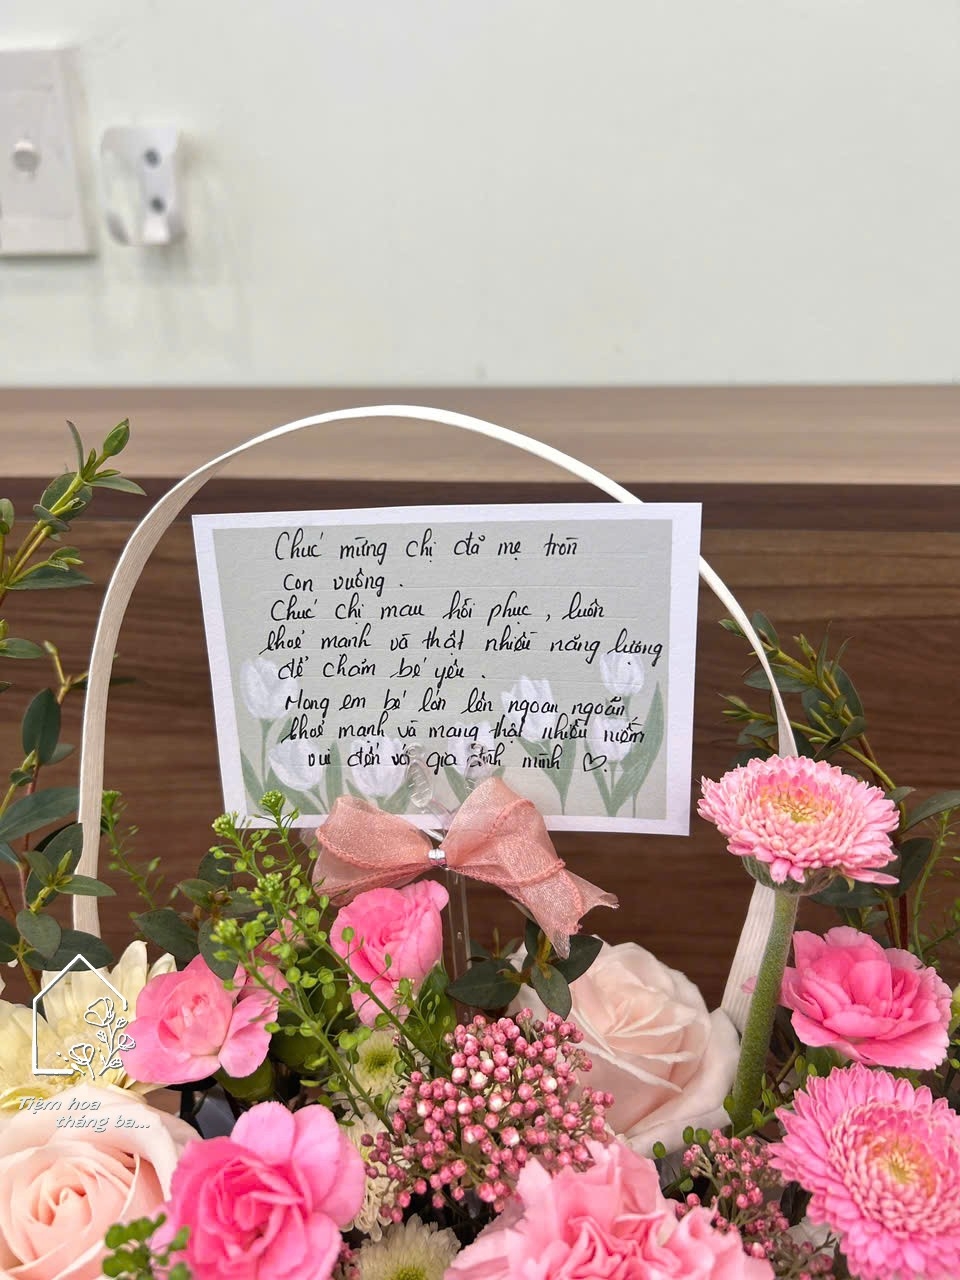 Chúc mừng chị đã mẹ tròn
con vuông.
Chúc chị mau hồi phục, luôn
khoẻ mạnh và thật nhiều năng lượng
để chăm bé yêu.
Mong em bé lớn lên ngoan ngoãn
khoẻ mạnh và mang thật nhiều niềm
vui đến với gia đình mình ♡.
Tiệm hoa
tháng ba...